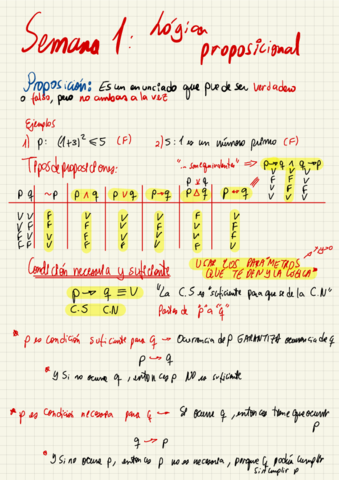 Semana 1: Lógica proposicional
Proposición: Es un enunciado que puede ser verdadero
o falso, pero no ambas a la vez
Ejemplos
1) p: (1+3)² ≤ 5 (F) 2) S: 1 es un número primo (F)
Tipos de proposiciones: "... son equivalentes" p→q ∧ q→p
p ⊻ q
p q ~p p ∧ q p ∨ q p → q p Δ q p ↔ q
USAR LOS PARÁMETROS
QUE TE DEN Y LA LÓGICA
Condición necesaria y suficiente
p → q ≡ V "La C.S es "suficiente para que se de la C.N"
C.S C.N Partes de "p" a "q"
* p es condición suficiente para q → Ocurrencia de p GARANTIZA ocurrencia de q
p → q
* Y Si no ocurre q, entonces p NO es suficiente
* p es condición necesaria para q → Si ocurre q, entonces tiene que ocurrir
p
q → p
* Y Si no ocurre p, entonces p no es necesaria, porque q podía cumplir
sin cumplir p